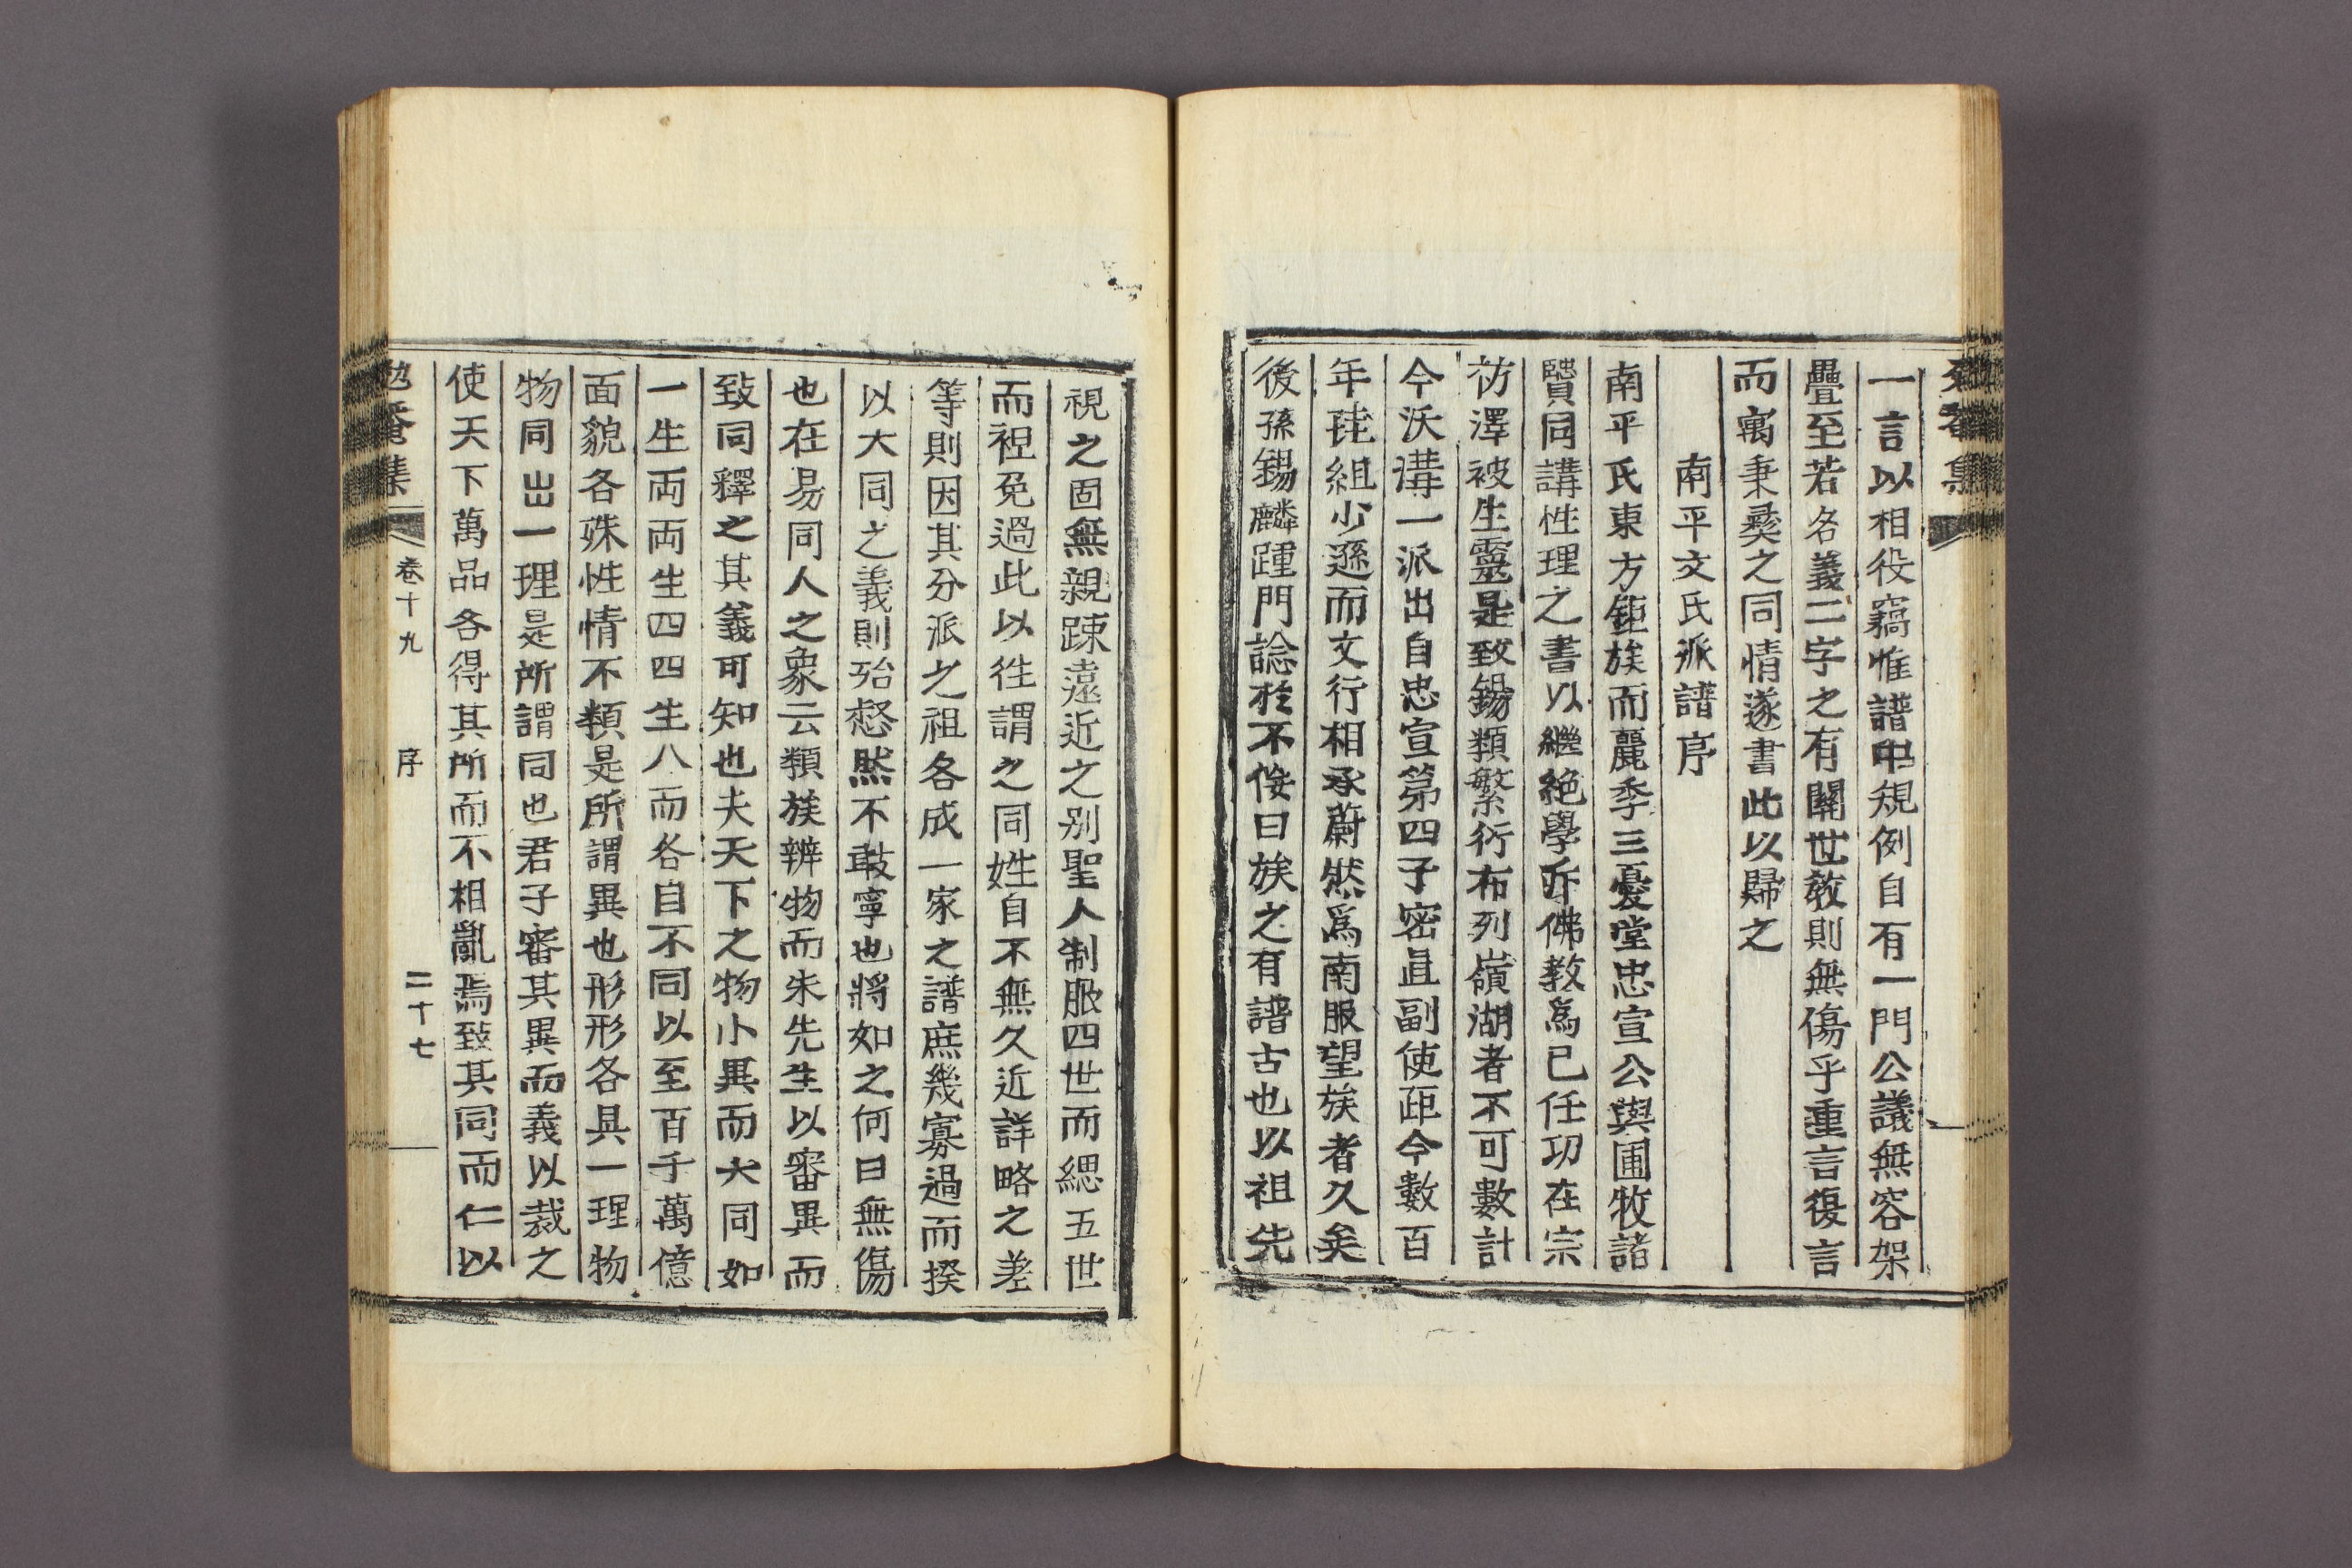 一言以相役竊惟譜中規例自有一門公議無容架
疊至若各義二字之有關世敎則無傷乎重言復言
而寓秉彛之同情遂書此以歸之
南平文氏派譜序
南平氏東方鉅族而麗季三憂堂忠宣公與圃牧諸
賢同講性理之書以繼絶學斥佛教爲已任功在宗
祊澤被生靈是致錫類繁衍布列嶺湖者不可數計
今沃溝一派出自忠宣第四子密直副使距今數百
年珪組少遜而文行相承蔚然爲南服望族者久矣
後孫錫麟踵門諗於不佞曰族之有譜古也以祖先
視之固無親踈遠近之别聖人制服四世而緦五世
而袒免過此以徃謂之同姓自不無久近詳略之差
等則因其分派之祖各成一家之譜庶幾寡過而揆
以大同之義則殆愸然不敢寧也將如之何曰無傷
也在易同人之象云類族辨物而朱先生以審異而
致同釋之其義可知也夫天下之物小異而大同如
一生両両生四四生八而各自不同以至百千萬億
面貌各殊性情不類是所謂異也形形各具一理物
物同出一理是所謂同也君子審其異而義以裁之
使天下萬品各得其所而不相亂焉致其同而仁以
勉菴集
卷十九
序
二十七